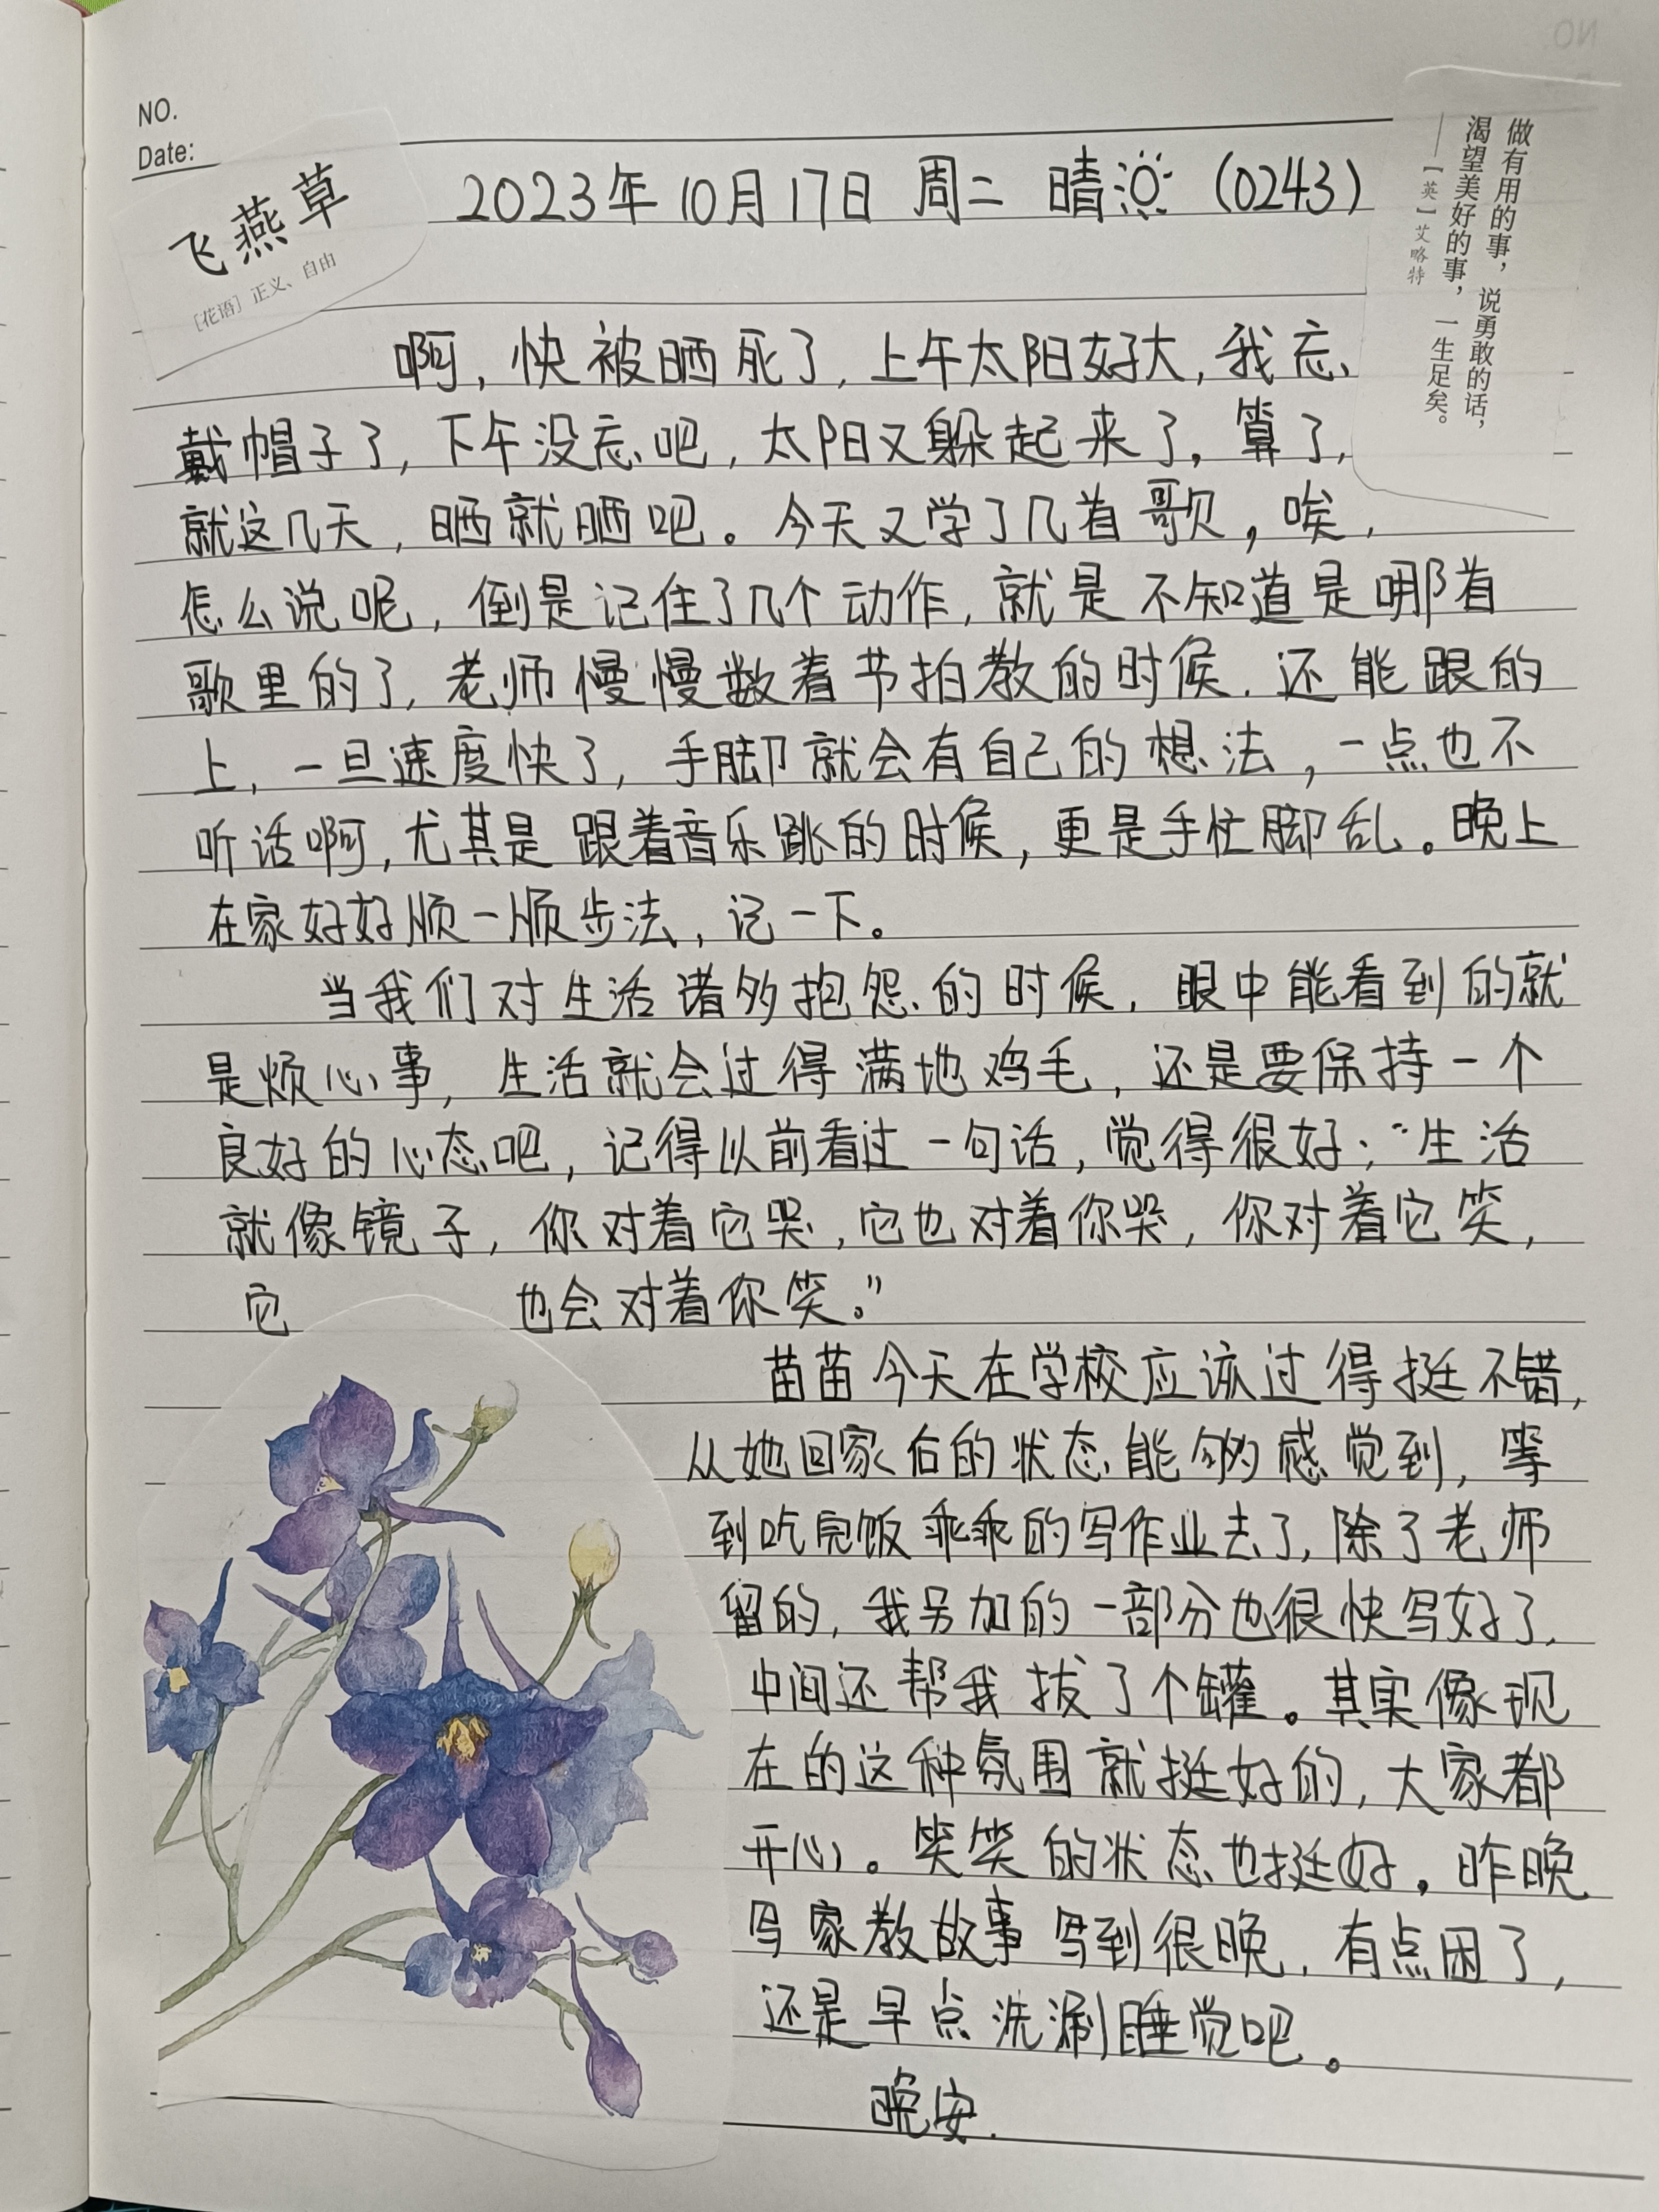 NO.
Date:
飞燕草
[花语] 正义、自由
做有用的事，说勇敢的话，
渴望美好的事，一生足矣。
——【英】艾略特
2023年10月17日 周二 晴 (0243)
啊，快被晒死了，上午太阳好大，我忘
戴帽子了，下午没忘吧，太阳又躲起来了。算了，
就这几天，晒就晒吧。今天又学了几首歌，唉，
怎么说呢，倒是记住了几个动作，就是不知道是哪首
歌里的了，老师慢慢数着节拍教的时候，还能跟的
上，一旦速度快了，手脚就会有自己的想法，一点也不
听话啊，尤其是跟着音乐跳的时候，更是手忙脚乱。晚上
在家好好顺一顺步法，记一下。
当我们对生活诸多抱怨的时候，眼中能看到的就
是烦心事，生活就会过得满地鸡毛，还是要保持一个
良好的心态吧，记得以前看过一句话，觉得很好；“生活
就像镜子，你对着它哭，它也对着你哭，你对着它笑，
它 也会对着你笑。”
苗苗今天在学校应该过得挺不错，
从她回家后的状态能够感觉到，等
到吃完饭乖乖的写作业去了，除了老师
留的，我另加的一部分也很快写好了，
中间还帮我拔了个罐。其实像现
在的这种氛围就挺好的，大家都
开心。笑笑的状态也挺好。昨晚
写家教故事写到很晚，有点困了，
还是早点洗涮睡觉吧。
晚安.